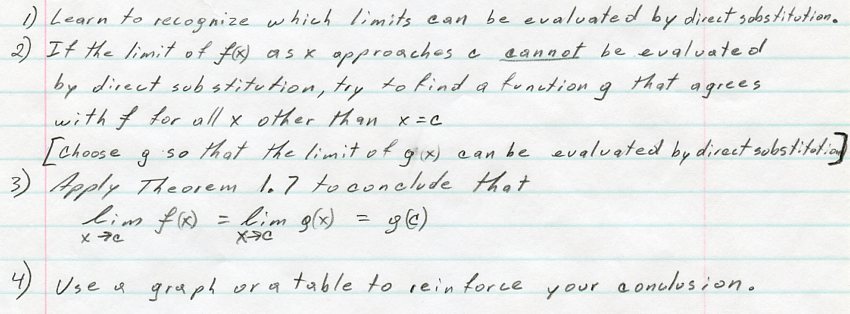 1) Learn to recognize which limits can be evaluated by direct substitution.
2) If the limit of f(x) as x approaches c cannot be evaluated
by direct substitution, try to find a function g that agrees
with f for all x other than x=c
[Choose g so that the limit of g(x) can be evaluated by direct substitution]
3) Apply Theorem 1.7 to conclude that
lim f(x) = lim g(x) = g(c)
x→c x→c
4) Use a graph or a table to reinforce your conclusion.